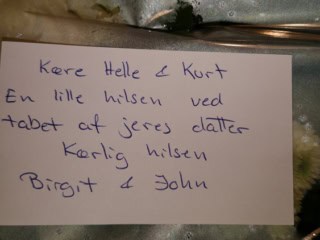 Kære Helle & Kurt
En lille hilsen ved
tabet af jeres datter
Kærlig hilsen
Birgit & John